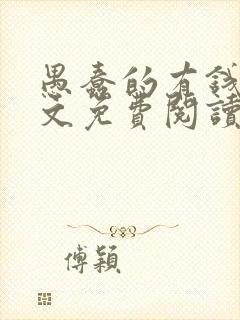 愚蠢的有錢
文免費閱讀
傅穎